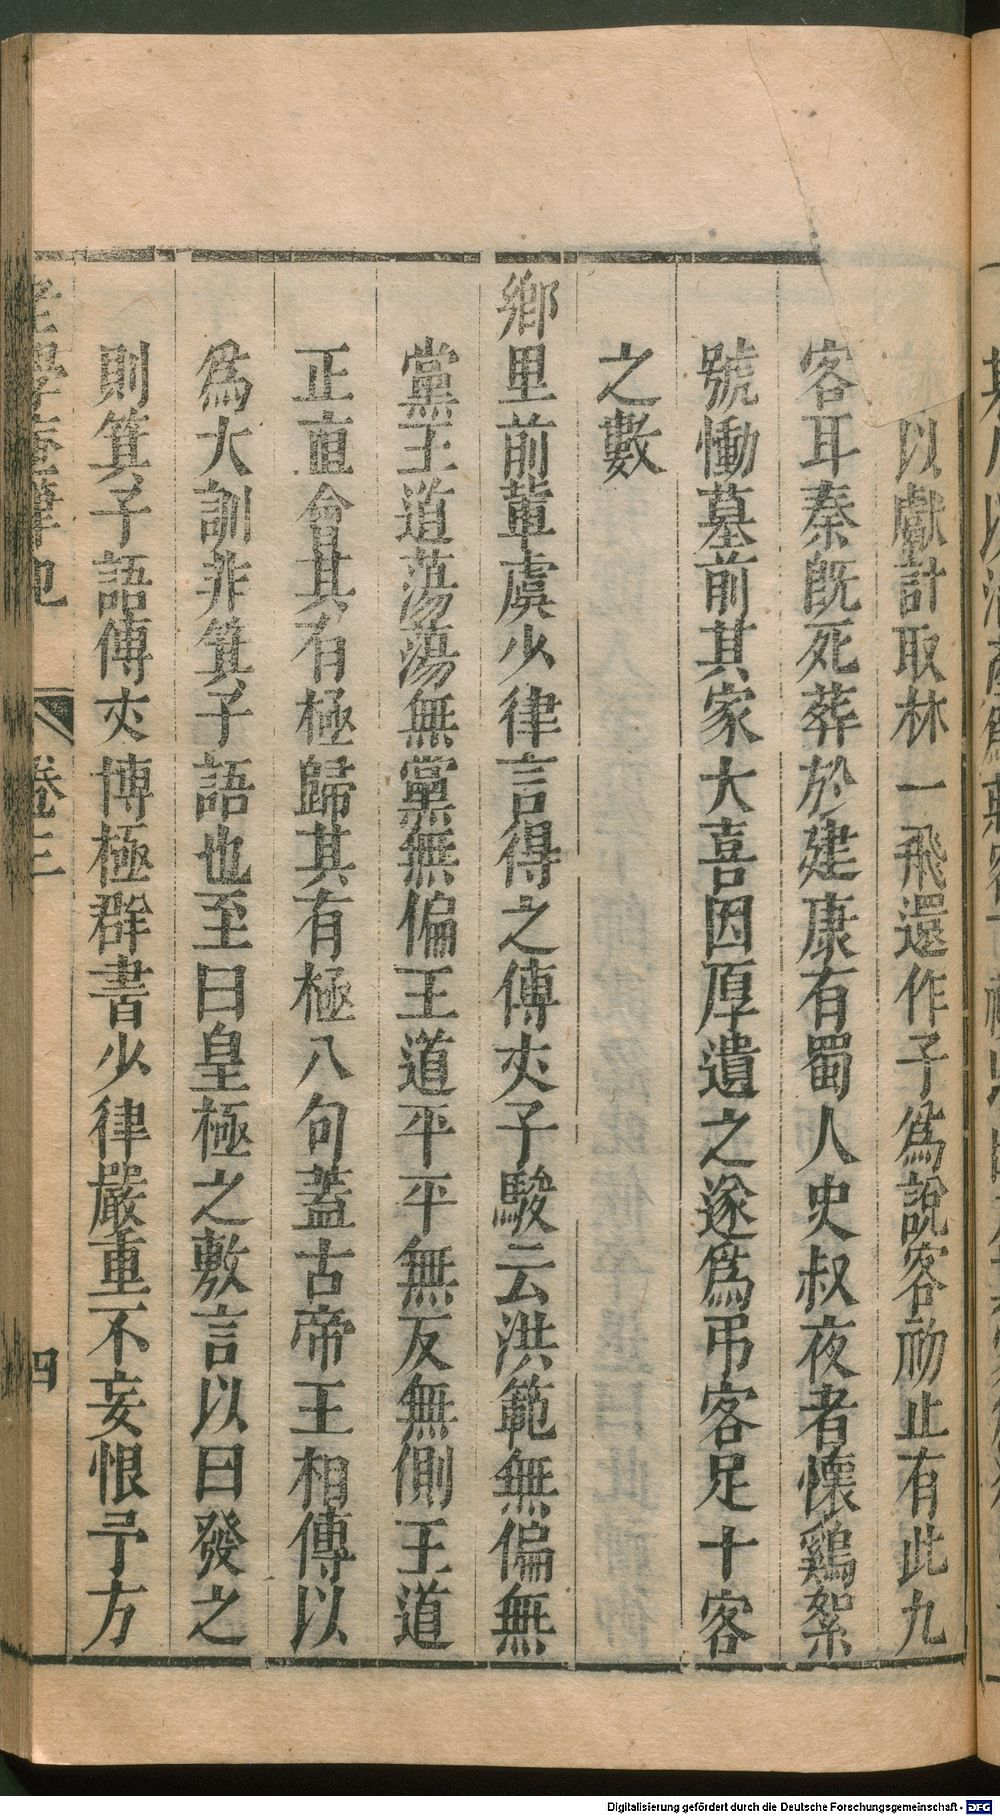 以獻計取林一飛還作子爲說客初止有此九
客耳秦既死葬於建康有蜀人史叔夜者懷鷄絮
號慟墓前其家大喜因厚遺之遂爲弔客足十客
之數
鄉里前輩虞少律言得之傅夾子駿云洪範無偏無
黨王道蕩蕩無黨無偏王道平平無反無側王道
正直會其有極歸其有極八句蓋古帝王相傳以
爲大訓非箕子語也至曰皇極之敷言以曰發之
則箕子語傅夾博極群書少律嚴重不妄恨予方
老學庵筆記 卷三 四
Digitalisierung gefördert durch die Deutsche Forschungsgemeinschaft - DFG